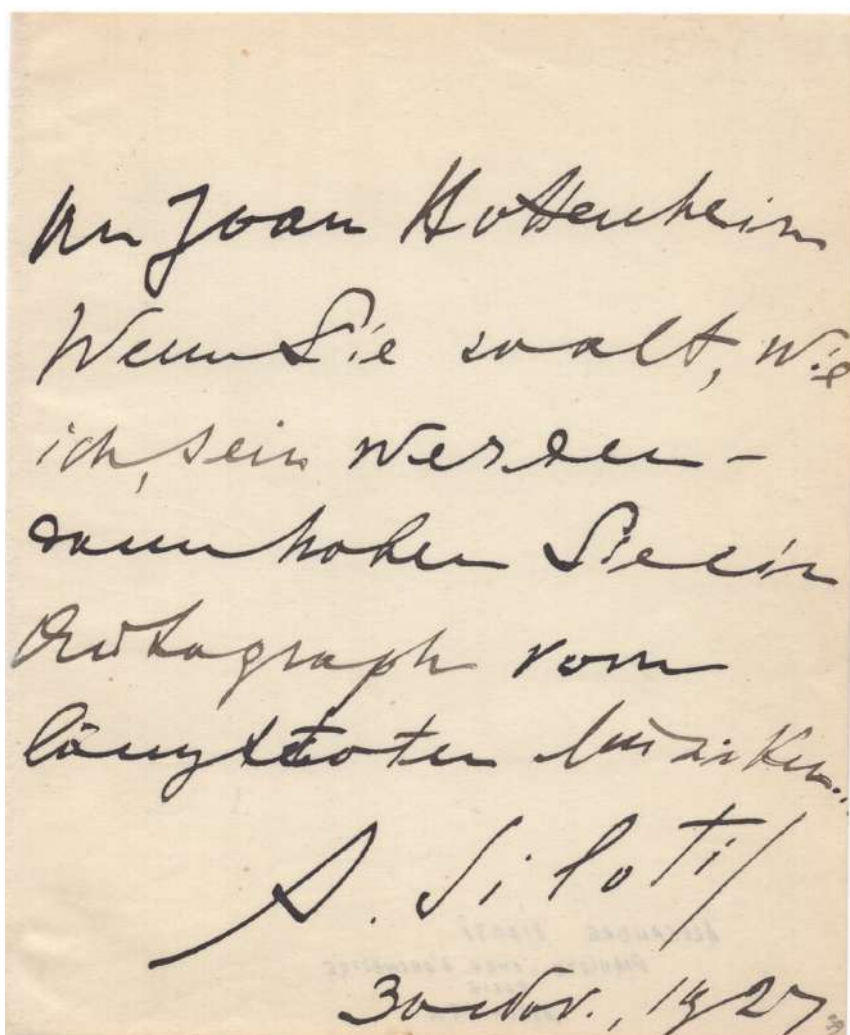 An Joan Hottenheim
Wenn Sie so alt, wie
ich, sein werden –
dann haben Sie ein
Autograph vom
längst toten Musiker...
A. Siloti
30 Nov., 1927